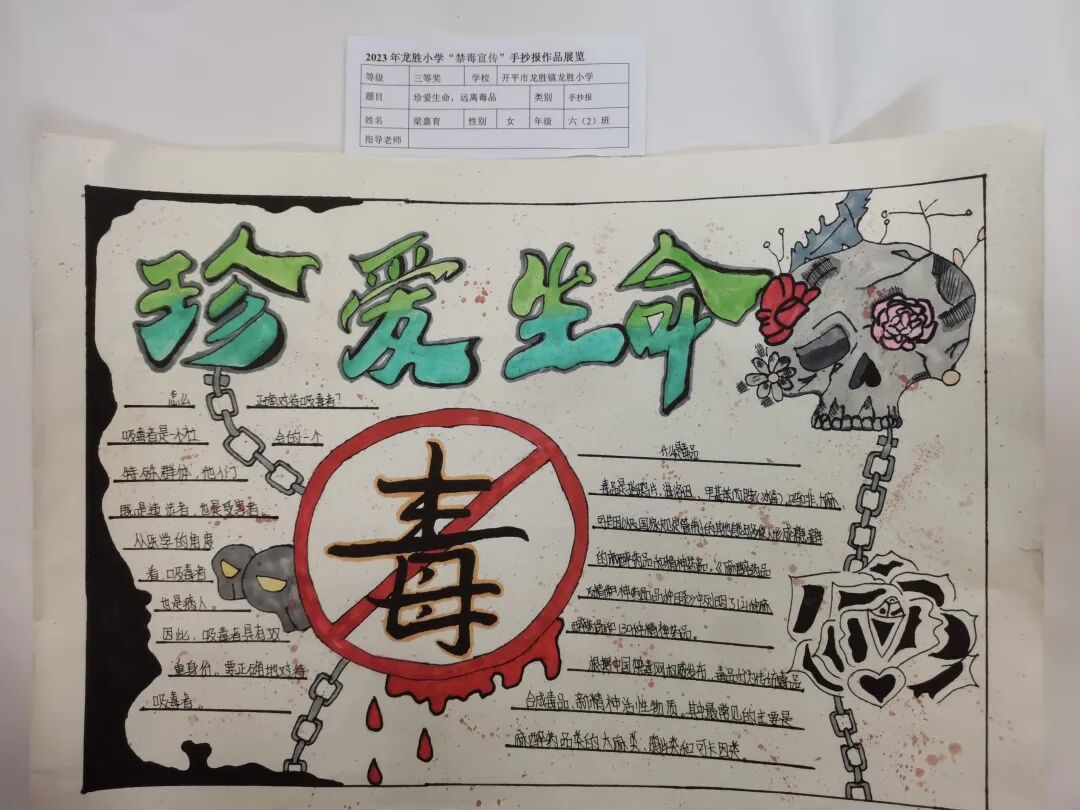 2023年龙胜小学“禁毒宣传”手抄报作品展览
等级 三等奖 学校 开平市龙胜镇龙胜小学
题目 珍爱生命，远离毒品 类别 手抄报
姓名 梁嘉育 性别 女 年级 六（2）班
指导老师
珍爱生命
怎么 正确对待吸毒者？
吸毒者是 社 会的一个
特殊群体，他们
既是违法者，也是受害者。
从医学的角度
看，吸毒者
也是病人。
因此，吸毒者具有双
重身份，要正确地对待
吸毒者。
毒
什么是毒品
毒品是指鸦片、海洛因、甲基苯丙胺（冰毒）、吗啡、大麻、
可卡因以及国家规定管制的其他能够使人形成瘾癖
的麻醉药品和精神药品。《麻醉药品
及精神药品品种目录》中列明了121种麻
醉药品和130种精神药品。
根据中国禁毒网权威发布，毒品分为传统毒品、
合成毒品、新精神活性物质。其中最常见的主要是
麻醉药品类的大麻类、鸦片类和可卡因类。